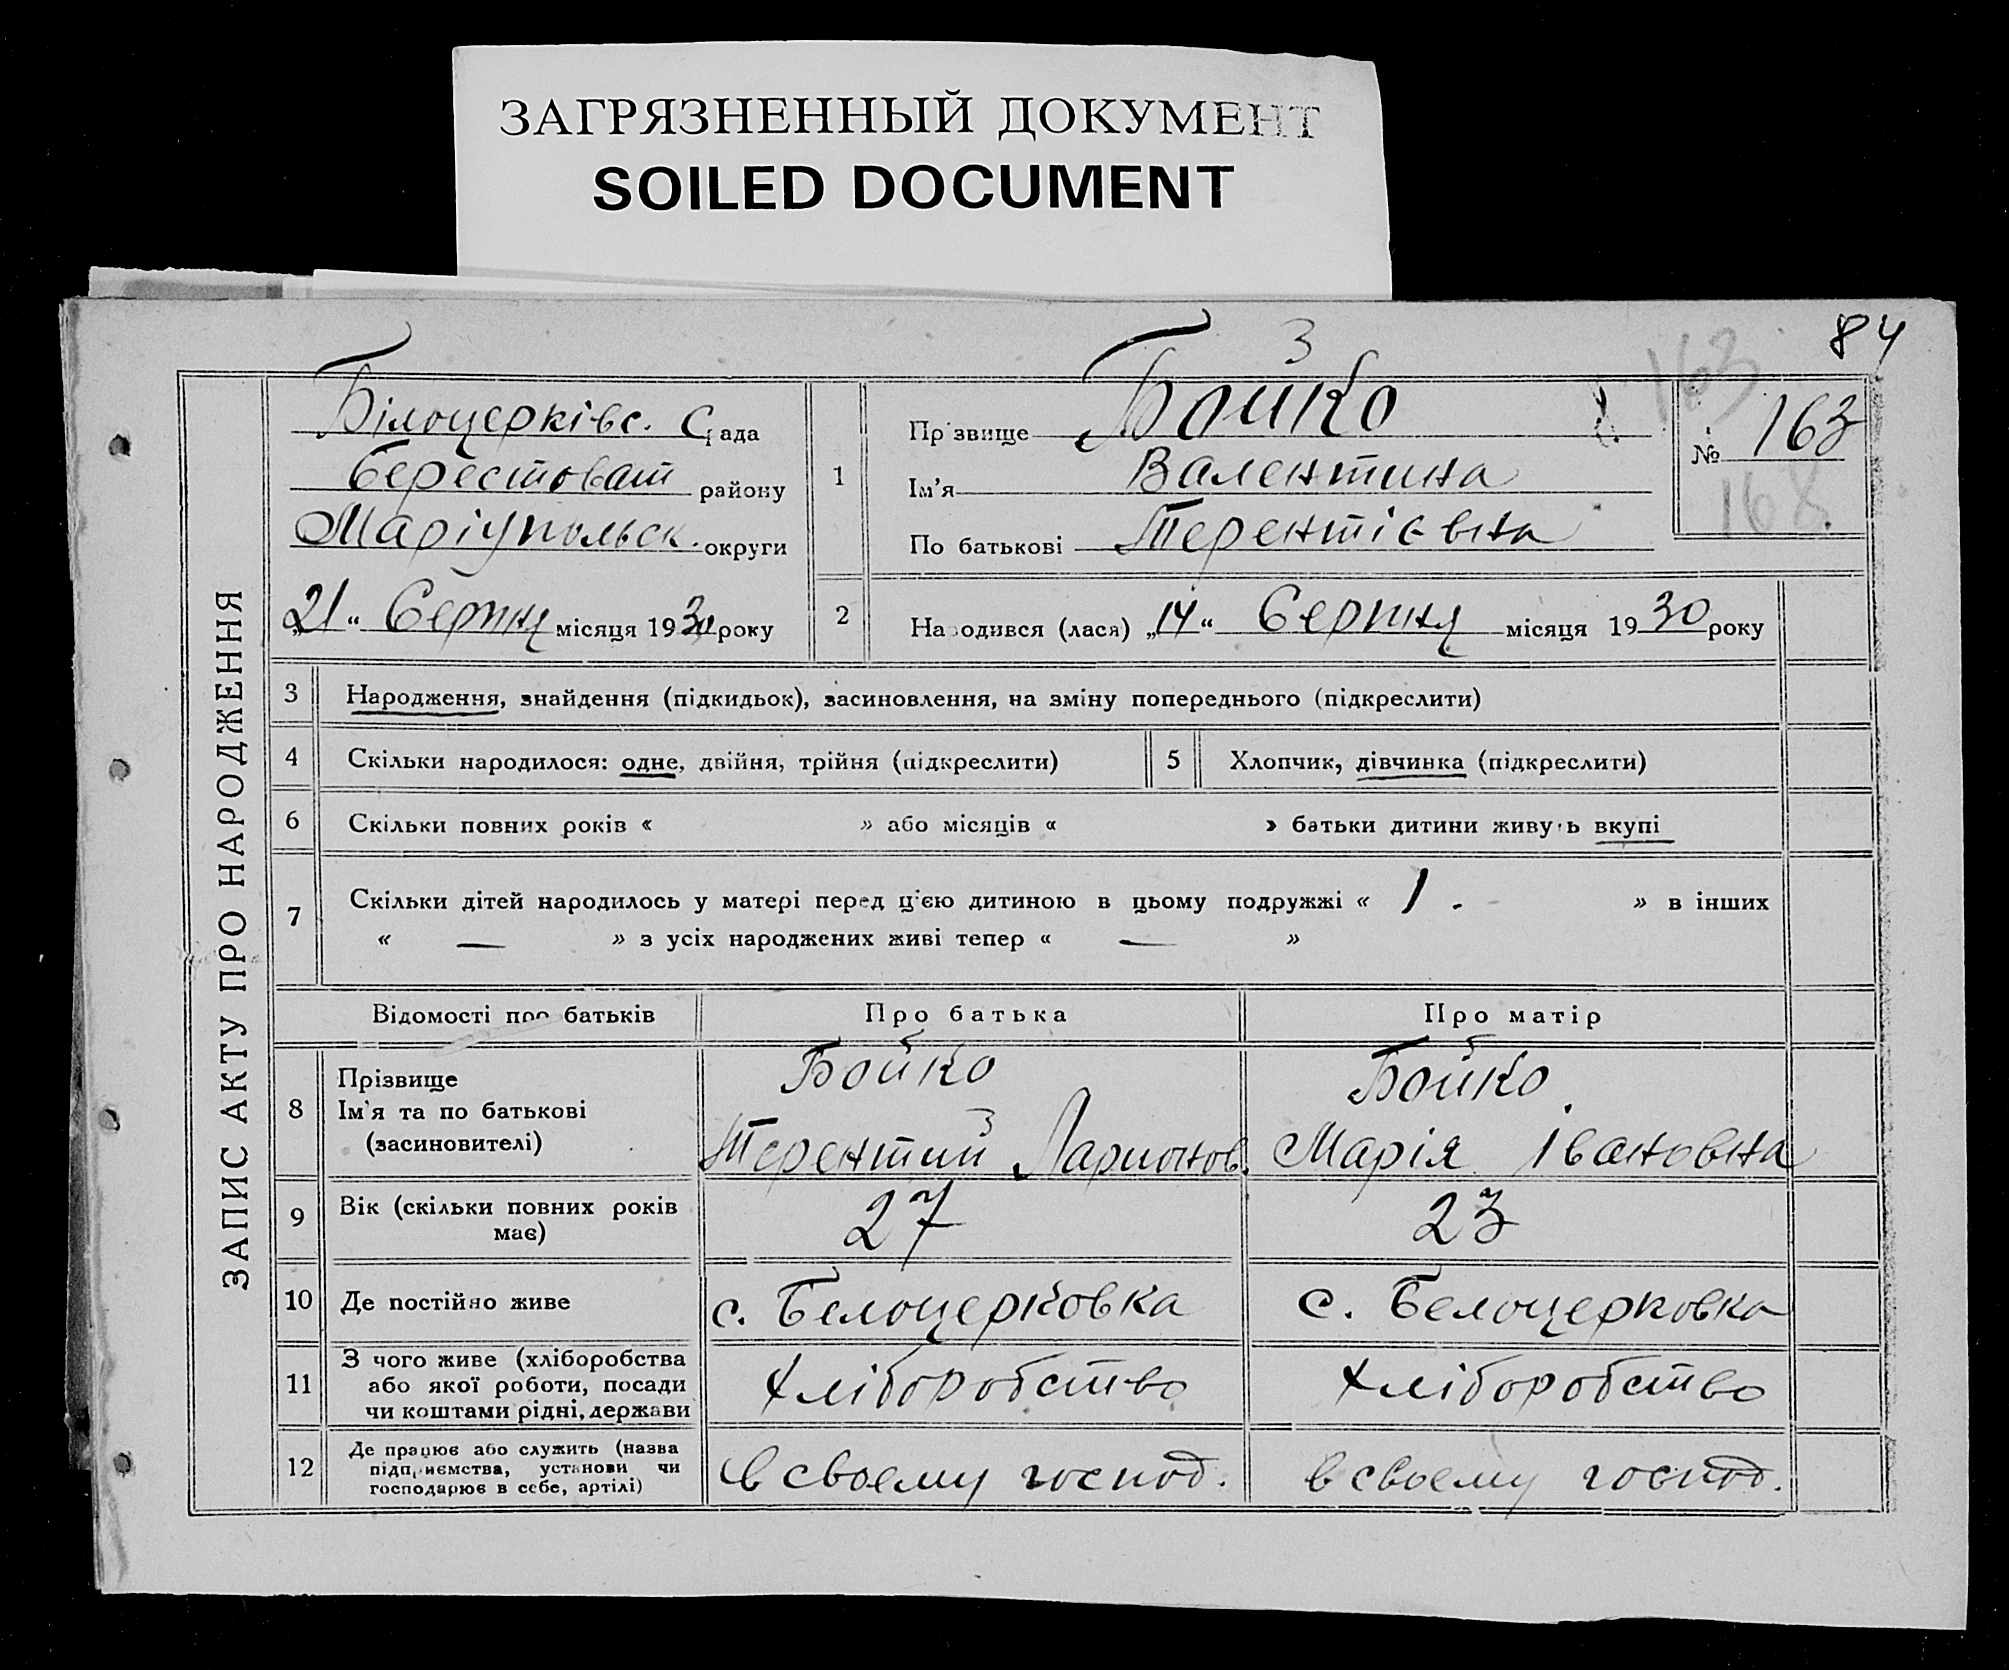 ЗАГРЯЗНЕННЫЙ ДОКУМЕНТ
SOILED DOCUMENT
84
3
163
ЗАПИС АКТУ ПРО НАРОДЖЕННЯ
Білоцерківс. С/рада
Берестоват району
Маріупольск. округи
„21“ Серпня місяця 1930 року
1
Прізвище Бойко
Ім’я Валентина
По батькові Терентієвна
№ 163
168
2
Народився (лася) „14“ Серпня місяця 1930 року
3 Народження, знайдення (підкидьок), засиновлення, на зміну попереднього (підкреслити)
4 Скільки народилося: одне, двійня, трійня (підкреслити) 5 Хлопчик, дівчинка (підкреслити)
6 Скільки повних років « » або місяців « » батьки дитини живуть вкупі
7 Скільки дітей народилось у матері перед цією дитиною в цьому подружжі « 1. » в інших
« — » з усіх народжених живі тепер « — »
Відомості про батьків Про батька Про матір
8 Прізвище
Ім’я та по батькові
(засиновителі)
Бойко
Терентий Ларионов.
Бойко
Марія Івановна
9 Вік (скільки повних років
має)
27 23
10 Де постійно живе с. Белоцерковка с. Белоцерковка
11 З чого живе (хліборобства
або якої роботи, посади
чи коштами рідні, держави
хліборобство хліборобство
12 Де працює або служить (назва
підприємства, установи чи
господарює в себе, артілі)
в своему господ. в своему господ.